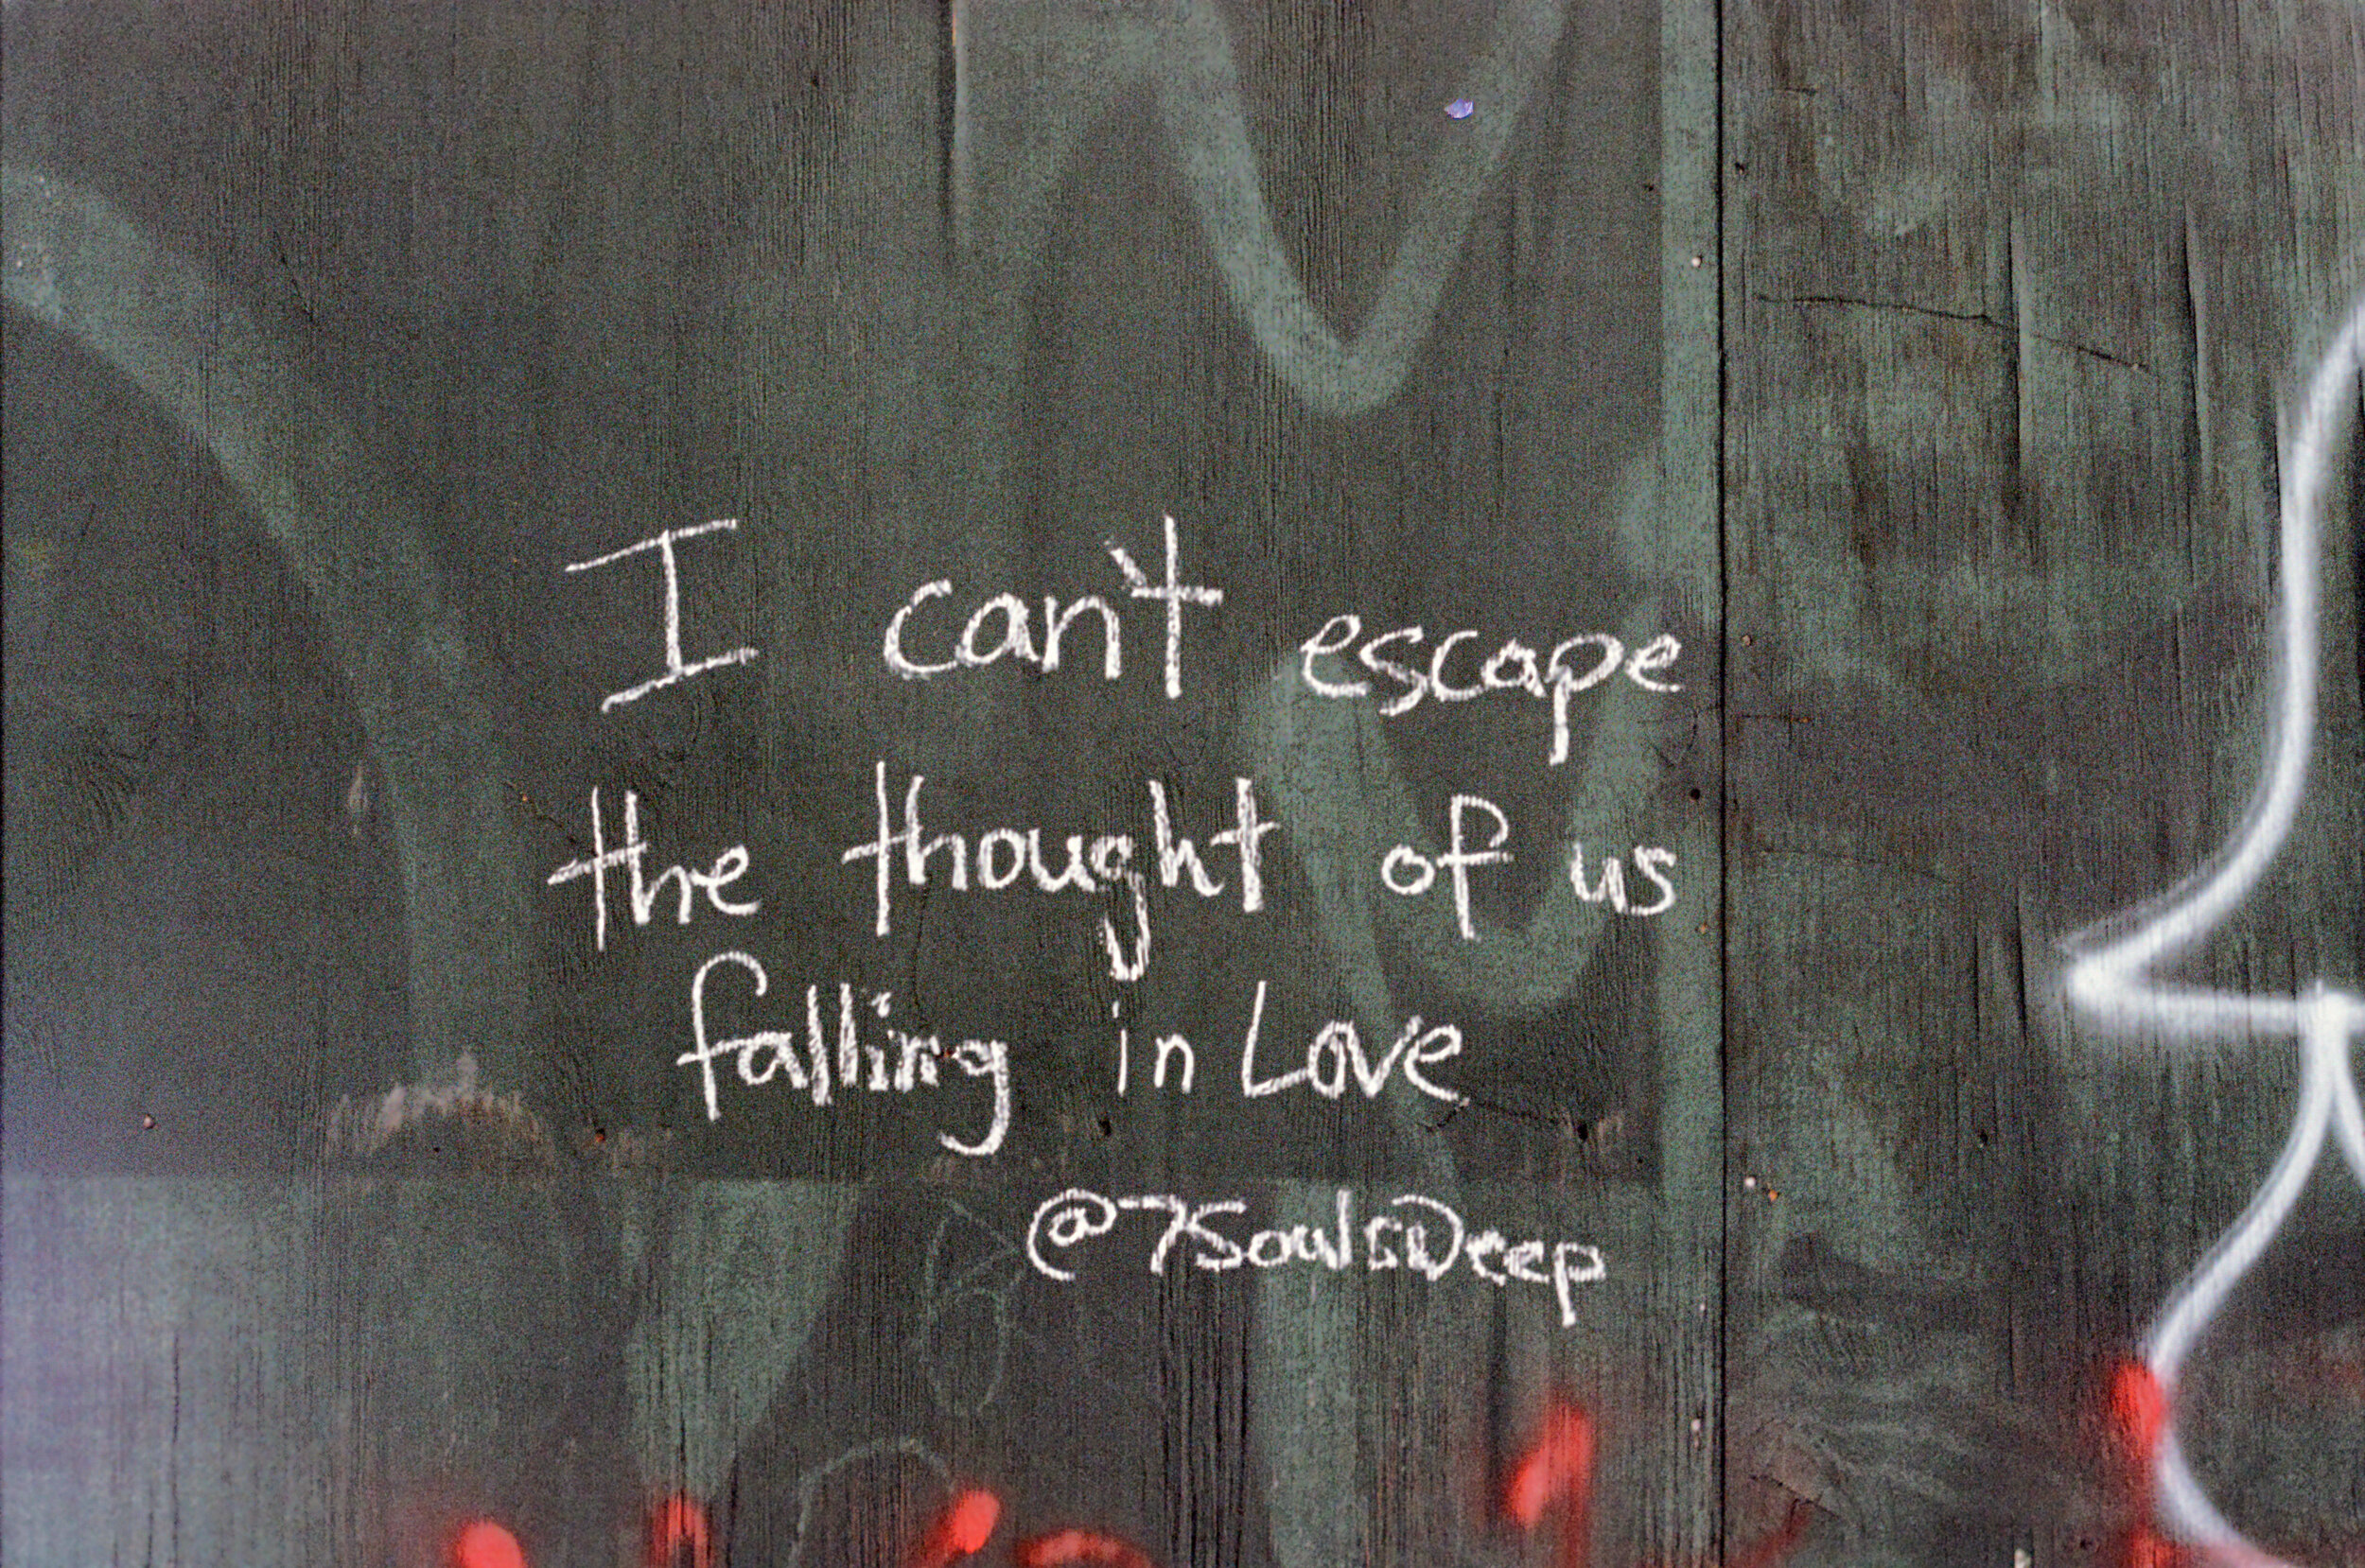 I can't escape
the thought of us
falling in Love
@7SoulsDeep